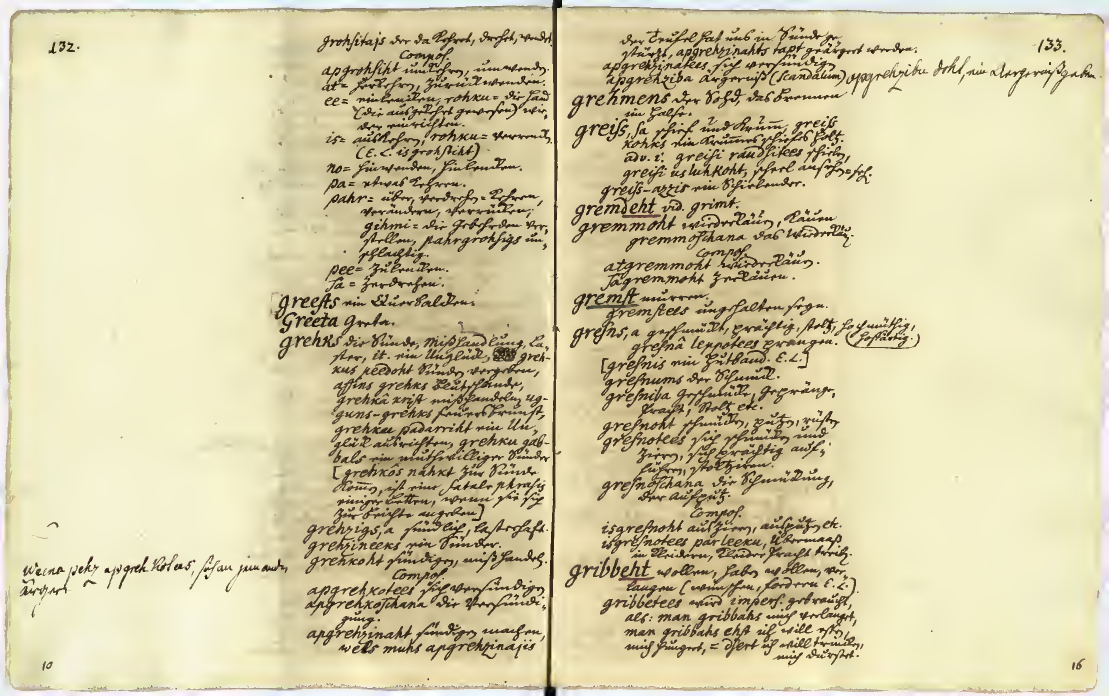 132.
grohsitajs der da kehret, drehet, wendet
Compos.
apgrohsiht umkehren, umwenden.
at= herkehren, zurückwenden.
ee= einlenken, rohku= die Hand
(die ausgekehrt gewesen) wie,
der einrichten.
is= auskehren, rohku= verrenken
(E. L. isgrohsiht)
no= hinwenden, hinlenken.
pa= etwas kehren.
pahr= über, verdrehen= kehren,
verändern, verrücken,
gihmi= die Gebehrden ver,
stellen, pahrgrohsigs un,
schlachtig.
pee= zulenken.
sa= zerdrehen.
greests ein Querbalken.
Greeta Greta.
grehks die Sünde, Mißhandlung, La,
ster, it. ein Unglück, greh-
kus peedoht Sünden vergeben,
assins grehks Blutschande,
grehkâ krist mißhandeln, ug-
guns-grehks Feuersbrunst,
grehku padarriht ein Un,
glük ausrichten, grehku gab-
bals ein muthwilliger Sünder
[grehkôs nahkt zur Sünde
kom̄en, ist eine fatale phrasis
einiger Letten, wenn sie sich
zur Beichte angeben]
grehzigs, a sündlich, lasterhaft.
grehzineeks ein Sünder.
grehkoht sündigen, mißhandeln.
Compos.
apgrehkotees sich versündigen
apgrehkoschana die Versündi,
gung.
apgrehzinaht sündigen machen,
wels muhs apgrehzinajis
weena pehz apgrehkotees, sich an jemanden
ärgern
10
133.
der Teufel hat uns in Sünde ge,
stürzt, apgrehzinahts tapt geärgert werden.
apgrehzinatees sich versündigen
apgrehziba Ärgerniß (Scandalum) apgrehzibu doht, ein Aergerniß geben.
grehmens der Sohd, das brennen
im Halse.
greiss, sa schief und krum̄, greiss
kohks ein krummes schiefes Holz,
adv. i. greisi raudsitees schielen,
greisi usluhkoht, scheel ansehen
greiss-azzis ein Schielender.
gremdeht vid. grimt.
gremmoht wiederkäuen, käuen
gremmoschana das Wiederkäu,
Compos.
atgremmoht wiederkäuen.
sagremmoht zerkäuen.
gremst murren.
gremstees ungehalten seyn.
gresns, a geschmückt, prächtig, stolz, hochmüthig,
(hoffärtig.)
gresnâ lepnotees prangen.
[gresnis ein Hutband. E. L.]
gresnums der Schmuck.
gresniba Geschmücke, Gepränge,
Pracht, Stolz etc.
gresnoht schmücken, putzen, rüsten
gresnotees sich schmücken und
zieren, sich prächtig auf,
führen, stolziren.
gresnoschana die Schmückung,
der Aufputz.
Compos.
isgresnoht auszieren, ausputzen etc.
isgresnotees par leeku, Übermaaß
in Kleidern, Kleider Pracht treib.
gribbeht wollen, haben wollen, ver,
langen (wünschen, fordern E. L.)
gribbetees wird impers. gebraucht,
als: man gribbahs mich verlanget,
man gribbahs ehst ich will essen,
mich hungert, = dsert ich will trinken,
mich durstet.
16